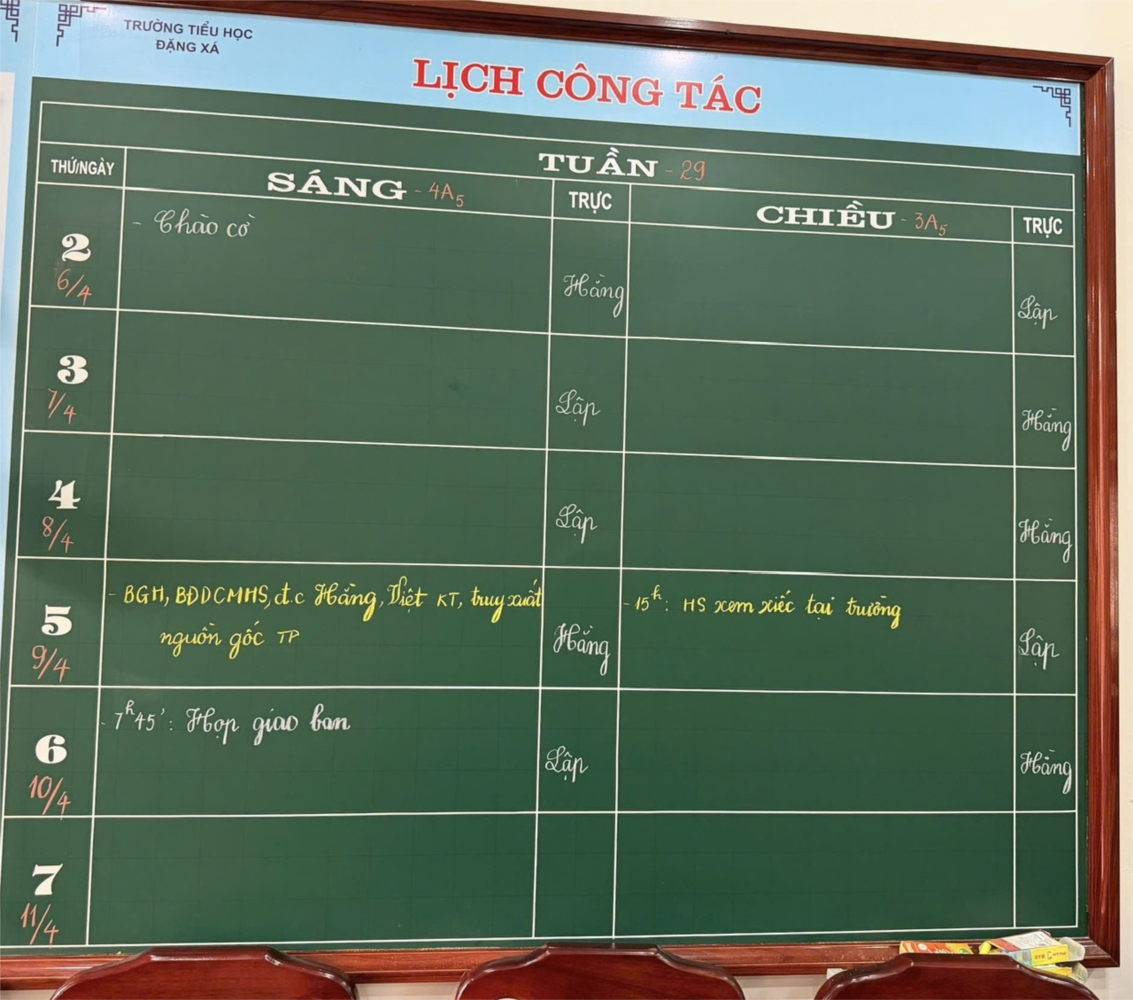 TRƯỜNG TIỂU HỌC
ĐẶNG XÁ
LỊCH CÔNG TÁC
TUẦN - 29
THỨ/NGÀY
SÁNG - 4A5
TRỰC
CHIỀU - 3A5
TRỰC
2
6/4
- Chào cờ
Hằng
Lập
3
7/4
Lập
Hằng
4
8/4
Lập
Hằng
5
9/4
- BGH, BĐDCMHS, đ.c Hằng, Việt KT, truy xuất
nguồn gốc TP
Hằng
- 15h: HS xem xiếc tại trường
Lập
6
10/4
- 7h45': Họp giao ban
Lập
Hằng
7
11/4